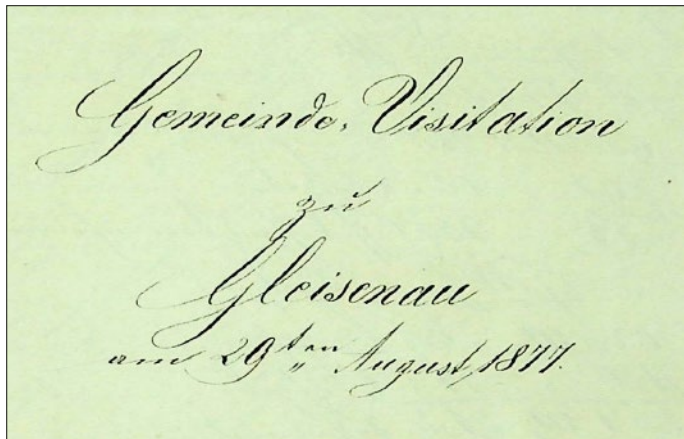 Gemeinde-Visitation
zu
Gleisenau
am 29ten August 1877.